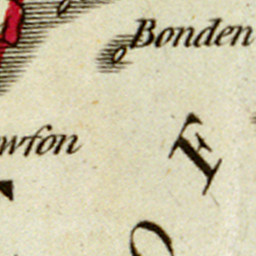 Bonden
wſon
OF